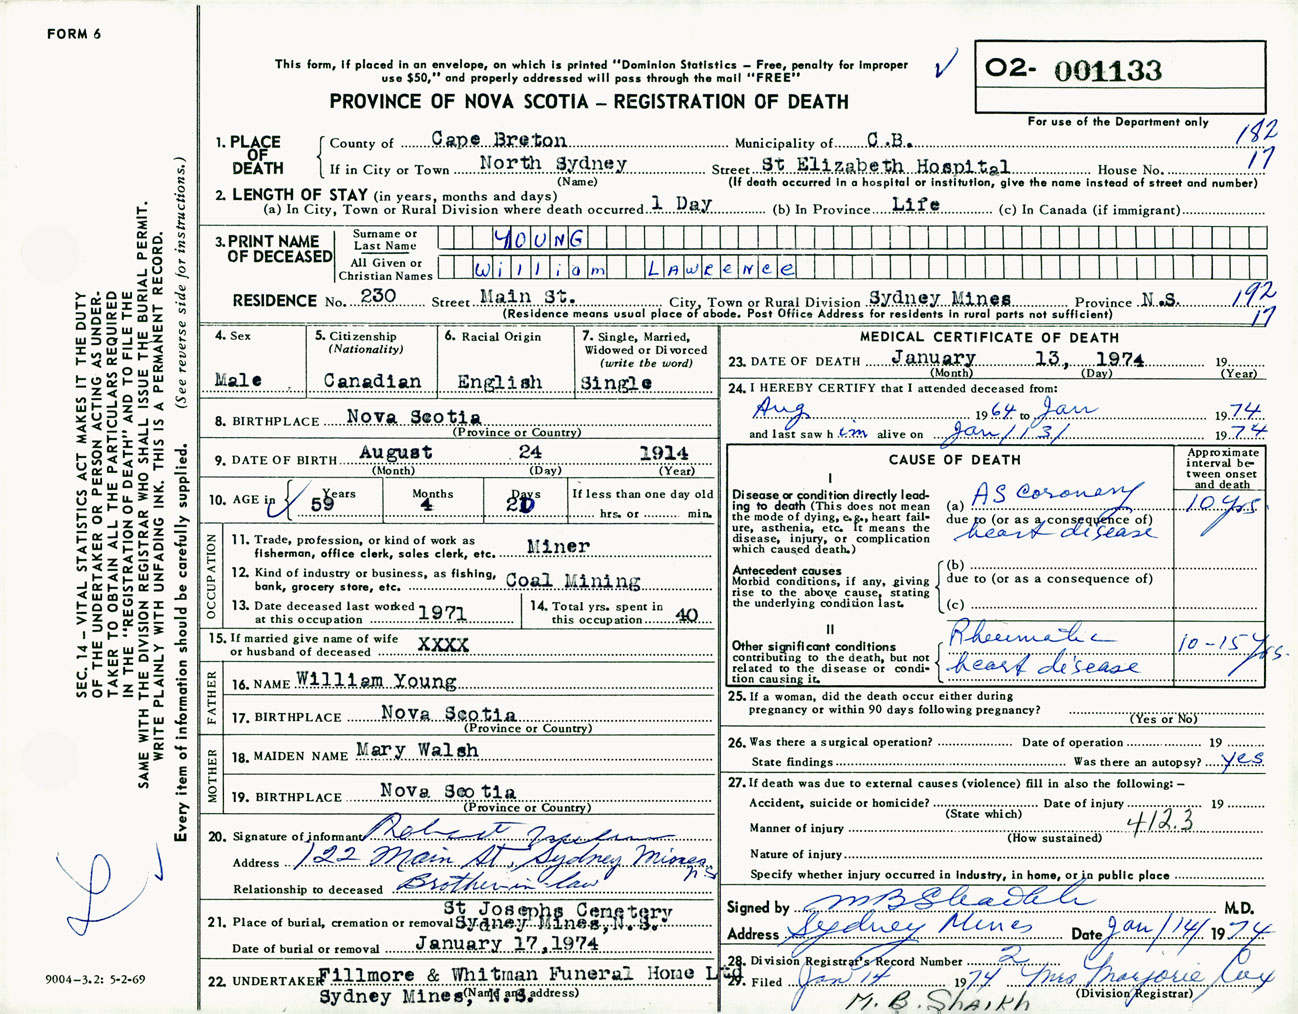 FORM 6
This form, if placed in an envelope, on which is printed "Dominion Statistics – Free, penalty for improper
use $50," and properly addressed will pass through the mail "FREE"
PROVINCE OF NOVA SCOTIA – REGISTRATION OF DEATH
02- 001133
For use of the Department only
182
17
1. PLACE OF DEATH
County of Cape Breton Municipality of C.B.
If in City or Town North Sydney Street St Elizabeth Hospital House No.
(Name) (If death occurred in a hospital or institution, give the name instead of street and number)
2. LENGTH OF STAY (in years, months and days)
(a) In City, Town or Rural Division where death occurred 1 Day (b) In Province Life (c) In Canada (if immigrant)
3. PRINT NAME OF DECEASED
Surname or Last Name YOUNG
All Given or Christian Names William LAWRENCE
RESIDENCE No. 230 Street Main St. City, Town or Rural Division Sydney Mines Province N.S.
(Residence means usual place of abode. Post Office Address for residents in rural parts not sufficient)
192
17
4. Sex
Male
5. Citizenship
(Nationality)
Canadian
6. Racial Origin
English
7. Single, Married,
Widowed or Divorced
(write the word)
Single
8. BIRTHPLACE Nova Scotia
(Province or Country)
9. DATE OF BIRTH August 24 1914
(Month) (Day) (Year)
10. AGE in Years Months Days If less than one day old
59 4 20 hrs. or min.
OCCUPATION
11. Trade, profession, or kind of work as
fisherman, office clerk, sales clerk, etc. Miner
12. Kind of industry or business, as fishing,
bank, grocery store, etc. Coal Mining
13. Date deceased last worked
at this occupation 1971
14. Total yrs. spent in
this occupation 40
15. If married give name of wife
or husband of deceased XXXX
FATHER
16. NAME William Young
17. BIRTHPLACE Nova Scotia
(Province or Country)
MOTHER
18. MAIDEN NAME Mary Walsh
19. BIRTHPLACE Nova Scotia
(Province or Country)
20. Signature of informant Robert
Address 122 Main St, Sydney Mines, N.S.
Relationship to deceased Brother-in-law
21. Place of burial, cremation or removal St Josephs Cemetery
Sydney Mines, N.S.
Date of burial or removal January 17, 1974
22. UNDERTAKER Fillmore & Whitman Funeral Home Ltd
Sydney Mines, N.S.
(Name and address)
MEDICAL CERTIFICATE OF DEATH
23. DATE OF DEATH January 13, 1974 19
(Month) (Day) (Year)
24. I HEREBY CERTIFY that I attended deceased from:
Aug 1964 to Jan 1974
and last saw him alive on Jan/13/ 1974
CAUSE OF DEATH
Approximate interval between onset and death
I
Disease or condition directly leading to death (This does not
mean the mode of dying, e.g., heart failure, asthenia, etc. It means the
disease, injury, or complication
which caused death.)
(a) AS coronary 10 yrs.
due to (or as a consequence of)
heart disease
Antecedent causes
Morbid conditions, if any, giving
rise to the above cause, stating
the underlying condition last.
(b)
due to (or as a consequence of)
(c)
II
Other significant conditions
contributing to the death, but not
related to the disease or condition causing it.
Rheumatic
heart disease
10-15 yrs.
25. If a woman, did the death occur either during
pregnancy or within 90 days following pregnancy?
(Yes or No)
26. Was there a surgical operation? Date of operation 19
State findings Was there an autopsy? yes
27. If death was due to external causes (violence) fill in also the following: –
Accident, suicide or homicide? Date of injury 19
(State which)
Manner of injury 412.3
(How sustained)
Nature of injury
Specify whether injury occurred in industry, in home, or in public place
Signed by M.D.
Address Sydney Mines Date Jan/14/ 1974
28. Division Registrar's Record Number 2
29. Filed Jan 14 1974 Mrs Marjorie Cox
(Division Registrar)
M.B. SHAIKH
SEC. 14 – VITAL STATISTICS ACT MAKES IT THE DUTY
OF THE UNDERTAKER OR PERSON ACTING AS UNDERTAKER
TO OBTAIN ALL THE PARTICULARS REQUIRED
IN THE "REGISTRATION OF DEATH" AND TO FILE THE
SAME WITH THE DIVISION REGISTRAR WHO SHALL ISSUE THE BURIAL PERMIT.
WRITE PLAINLY WITH UNFADING INK. THIS IS A PERMANENT RECORD.
Every item of information should be carefully supplied. (See reverse side for instructions.)
9004-3.2: 5-2-69